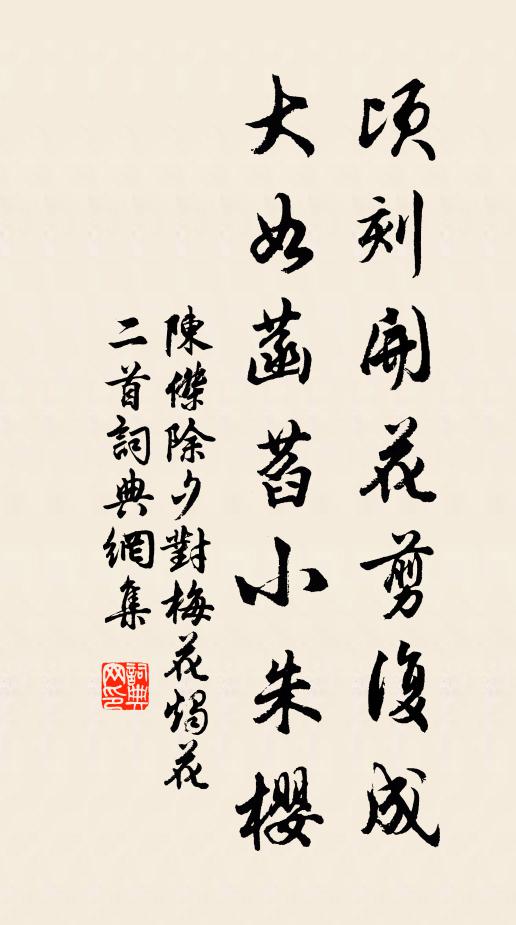 頃刻開花剪復成
大如菡萏小朱櫻
陳傑除夕對梅花燭花
二首詞典網集
詞典網印